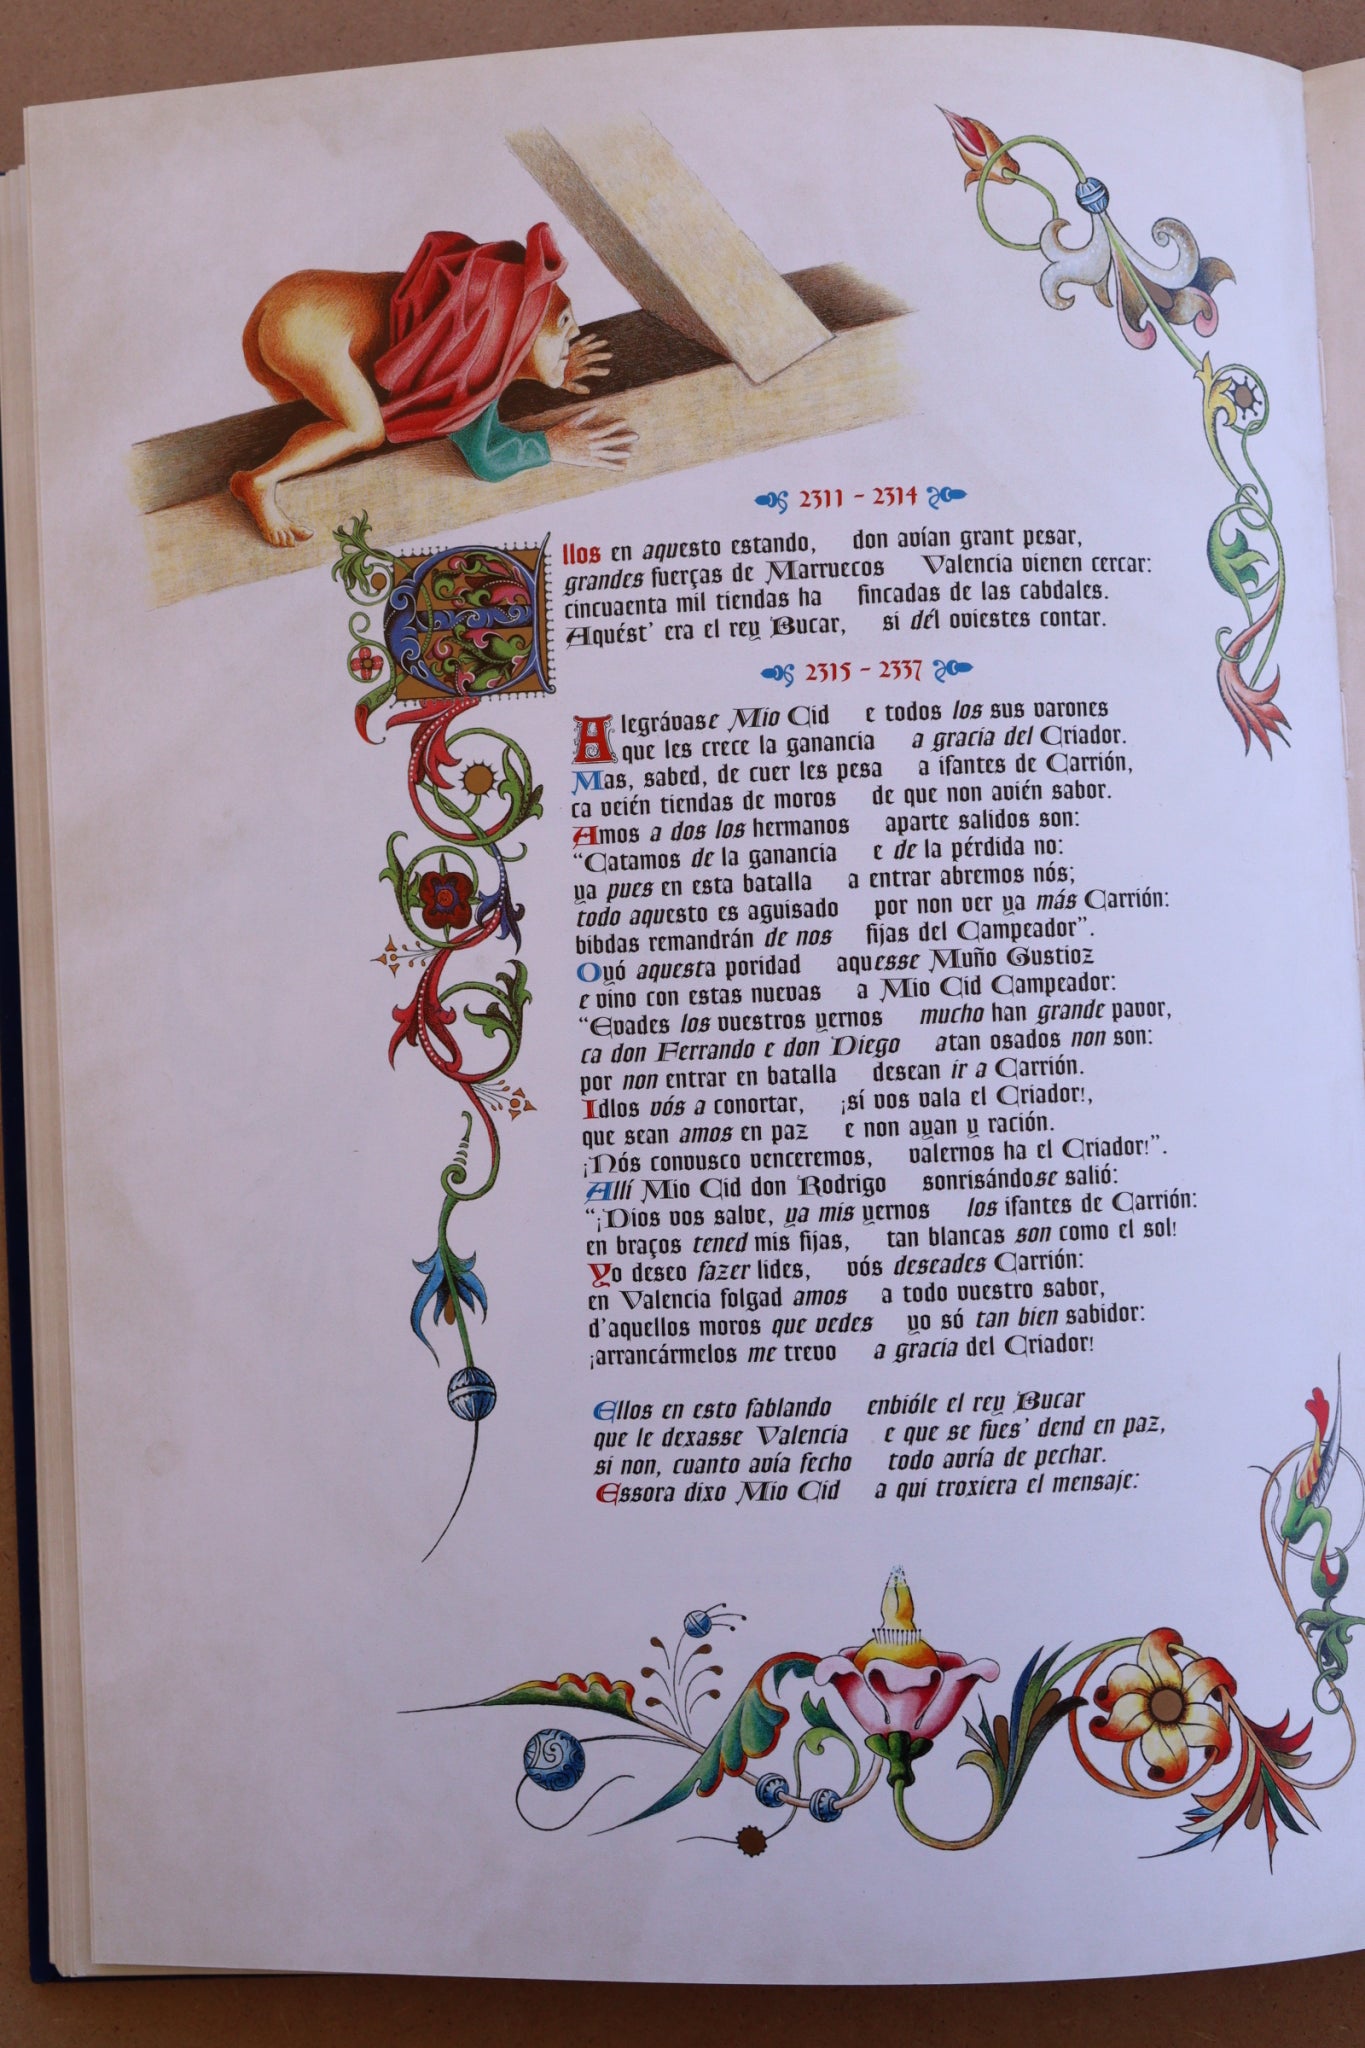 2311 - 2314
Ellos en aquesto estando, don avían grant pesar,
grandes fuerças de Marruecos Valencia vienen cercar:
cincuaenta mil tiendas ha fincadas de las cabdales.
Aquést' era el rey Bucar, si dél oviestes contar.
2315 - 2337
Alegrávase Mio Cid e todos los sus varones
que les crece la ganancia a gracia del Criador.
Mas, sabed, de cuer les pesa a ifantes de Carrión,
ca veién tiendas de moros de que non avién sabor.
Amos a dos los hermanos aparte salidos son:
“Catamos de la ganancia e de la pérdida no:
ya pues en esta batalla a entrar abremos nós;
todo aquesto es aguisado por non ver ya más Carrión:
bibdas remandrán de nos fijas del Campeador”.
Oyó aquesta poridad aquesse Muño Gustioz
e vino con estas nuevas a Mio Cid Campeador:
“Evades los vuestros yernos mucho han grande pavor,
ca don Ferrando e don Diego atan osados non son:
por non entrar en batalla desean ir a Carrión.
Idlos vós a conortar, ¡sí vos vala el Criador!,
que sean amos en paz e non ayan y ración.
¡Nós convusco venceremos, valernos ha el Criador!”.
Allí Mio Cid don Rodrigo sonrisándose salió:
“¡Dios vos salve, ya mis yernos los ifantes de Carrión:
en braços tened mis fijas, tan blancas son como el sol!
Yo deseo fazer lides, vós deseades Carrión:
en Valencia folgad amos a todo vuestro sabor,
d'aquellos moros que vedes yo só tan bien sabidor:
¡arrancármelos me trevo a gracia del Criador!
Ellos en esto fablando enbióle el rey Bucar
que le dexasse Valencia e que se fues' dend en paz,
si non, cuanto avía fecho todo avría de pechar.
Essora dixo Mio Cid a qui troxiera el mensaje: